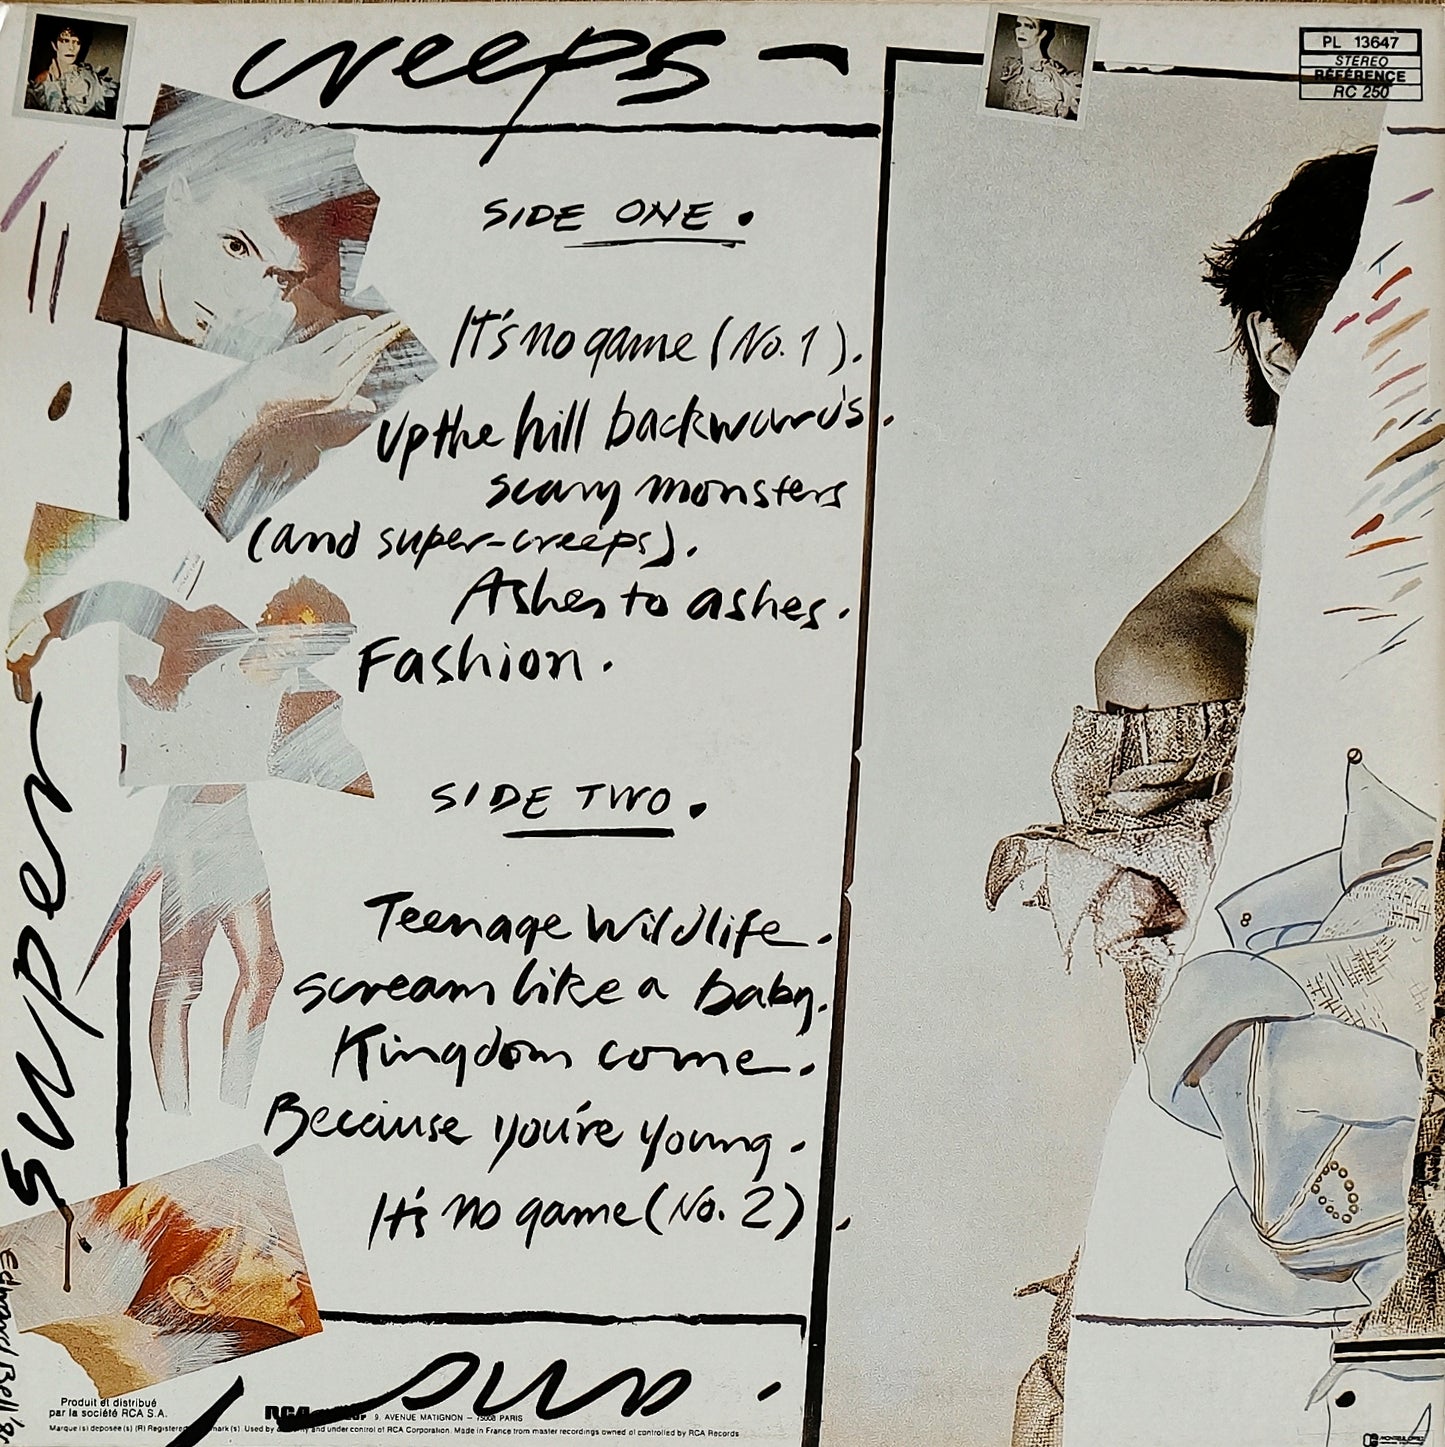 creeps -
PL 13647
STEREO
RÉFÉRENCE
RC 250
SIDE ONE.
It's no game (No. 1).
Up the hill backwards.
scary monsters
(and super-creeps).
Ashes to ashes.
Fashion.
super
SIDE TWO.
Teenage Wildlife.
scream like a baby.
Kingdom come.
Because you're young.
It's no game (No. 2).
Edward Bell '80
Produit et distribué
par la société RCA S.A.
RCA 9, AVENUE MATIGNON - 75008 PARIS
Marque(s) déposée(s) (R) Registered mark(s). Used by and under control of RCA Corporation. Made in France from master recordings owned or controlled by RCA Records